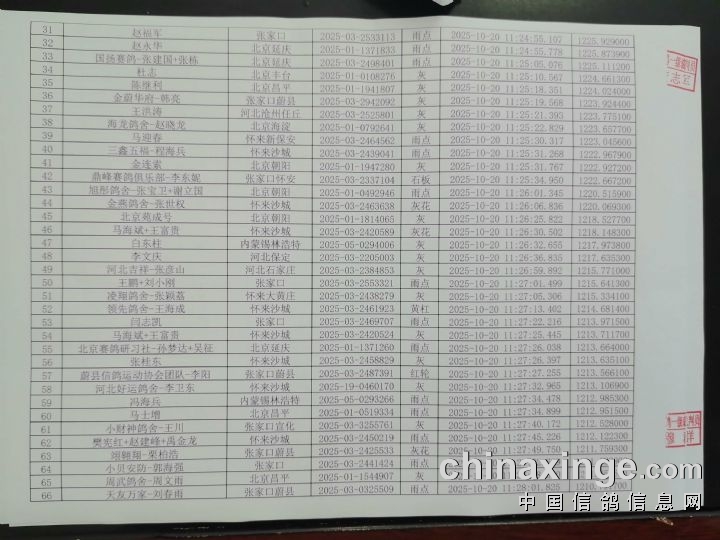 31 赵福军 张家口 2025-03-2533113 雨点 2025-10-20 11:24:55.107 1225.929000
32 赵永华 北京延庆 2025-01-1371833 雨点 2025-10-20 11:24:55.778 1225.873900
33 国扬赛鸽-张建国+张栋 北京延庆 2025-03-2498401 雨点 2025-10-20 11:25:05.076 1225.111200
34 杜志 北京丰台 2025-01-0108276 灰 2025-10-20 11:25:10.567 1224.661300
35 陈继利 北京昌平 2025-01-1941807 灰 2025-10-20 11:25:18.351 1224.024000
36 金蔚华府-韩亮 张家口蔚县 2025-03-2942092 灰 2025-10-20 11:25:19.568 1223.924400
37 王洪涛 河北沧州任丘 2025-03-2525801 灰 2025-10-20 11:25:21.393 1223.775100
38 海龙鸽舍-赵晓龙 北京海淀 2025-01-0792641 灰 2025-10-20 11:25:22.829 1223.657700
39 马迎春 怀来新保安 2025-03-2464562 雨点 2025-10-20 11:25:30.317 1223.045600
40 三鑫五福-程海兵 怀来沙城 2025-03-2439041 雨点 2025-10-20 11:25:31.268 1222.967900
41 金连索 北京朝阳 2025-01-1947280 灰 2025-10-20 11:25:31.767 1222.927200
42 鼎峰赛鸽俱乐部-李东妮 张家口怀安 2025-03-2337104 石板 2025-10-20 11:25:34.950 1222.667200
43 旭彤鸽舍-张宝卫+谢立国 北京朝阳 2025-01-0492946 雨点 2025-10-20 11:26:01.345 1220.515900
44 金燕鸽舍-张世权 怀来沙城 2025-03-2463638 灰花 2025-10-20 11:26:06.836 1220.069300
45 北京苑成号 北京朝阳 2025-01-1814065 灰 2025-10-20 11:26:25.822 1218.527700
46 马海斌+王富贵 怀来沙城 2025-03-2420589 灰花 2025-10-20 11:26:30.502 1218.148300
47 白东柱 内蒙锡林浩特 2025-05-0294006 灰 2025-10-20 11:26:32.655 1217.973800
48 李文庆 河北保定 2025-03-2205003 灰 2025-10-20 11:26:36.835 1217.635300
49 河北吉祥-张彦山 河北石家庄 2025-03-2384853 灰 2025-10-20 11:26:59.892 1215.771000
50 王鹏+刘小刚 张家口 2025-03-2553321 雨点 2025-10-20 11:27:01.499 1215.641300
51 凌翔鸽舍-张颖磊 怀来大黄庄 2025-03-2438279 灰 2025-10-20 11:27:05.306 1215.334100
52 领先鸽舍-王海成 怀来沙城 2025-03-2461923 黄杠 2025-10-20 11:27:13.402 1214.681400
53 闫志凯 张家口 2025-03-2469707 雨点 2025-10-20 11:27:22.216 1213.971500
54 马海斌+王富贵 怀来沙城 2025-03-2420524 灰 2025-10-20 11:27:25.445 1213.711700
55 北京赛鸽研习社-孙梦达+吴征 北京延庆 2025-01-1371260 雨点 2025-10-20 11:27:26.038 1213.664000
56 张桂东 怀来沙城 2025-03-2458829 灰 2025-10-20 11:27:26.397 1213.635100
57 蔚县信鸽运动协会团队-李阳 张家口蔚县 2025-03-2487391 红轮 2025-10-20 11:27:27.255 1213.566100
58 河北好运鸽舍-李卫东 怀来沙城 2025-19-0460170 灰 2025-10-20 11:27:32.965 1213.106900
59 冯海兵 内蒙锡林浩特 2025-05-0293266 雨点 2025-10-20 11:27:34.478 1212.985300
60 马士增 北京昌平 2025-01-0519334 雨点 2025-10-20 11:27:34.899 1212.951500
61 小财神鸽舍-王川 张家口宣化 2025-03-3255761 灰 2025-10-20 11:27:40.172 1212.528000
62 樊宪红+赵建峰+禹金龙 怀来沙城 2025-03-2450219 雨点 2025-10-20 11:27:45.226 1212.122300
63 翊翱翔-栗柏浩 张家口蔚县 2025-03-2425533 灰花 2025-10-20 11:27:49.750 1211.759300
64 小贝安防-郭海强 张家口 2025-03-2441424 雨点
65 周武鸽舍-周文雨 北京昌平 2025-01-1544907 灰
66 天友万家-刘春雨 张家口蔚县 2025-03-0325509 雨点 2025-10-20 11:28:01.825
chinaxinge.com
中国信鸽信息网